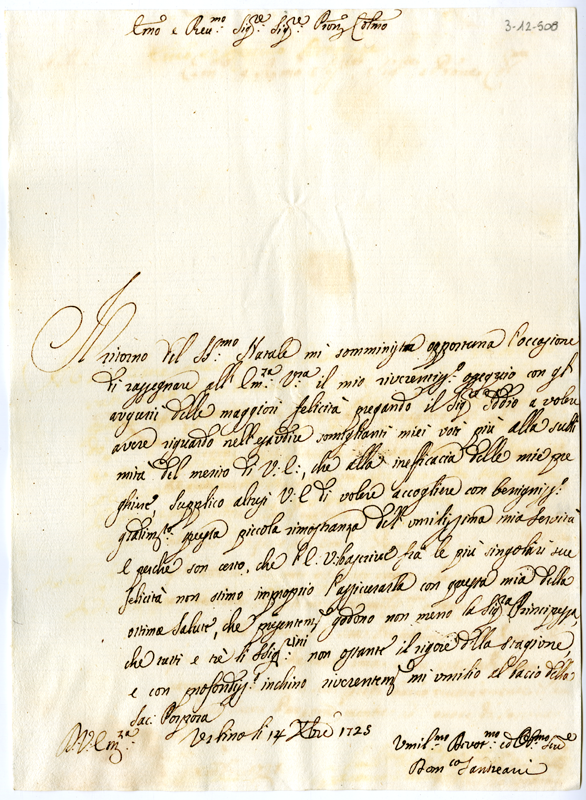 Emo e Revmo Sigre Sigre Pron Colmo
3-12-508
Il ritorno del SS.mo Natale mi somministra opportuna l'occasione
di rassegnare all' Em.za V.ra il mio riverentiss.o ossequio con gl'
augurij delle maggiori felicità pregando il Sig.re Iddio a volere
avere riguardo nell'esaudire somiglianti miei voti più alla subli
mità del merito di V.E., che alla inefficacia delle mie pre
ghiere, supplico altresì V.E. di volere accogliere con benigniss.o
gradim.to questa piccola rimostranza dell' umilissima mia servitù
e perche son certo, che l'E. V. frà le più singolari sue
felicità non stimo improprio l'assicurarla con questa mia della
ottima salute, che presentem.e godono non meno la Sig.ra Principessa
che tutti e trè li Sig.rini non ostante il rigore della stagione,
e con profondiss.o inchino riverentem.e mi umilio al bacio della
Sac. Porpora
D.V. Em.za
Urbino li 14 Xbre 1725
Umil.mo Devot.mo ed Obl.mo Sre
Dom.co